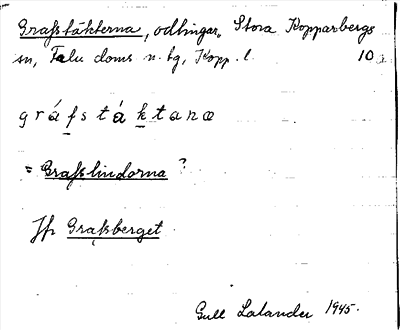 Grafstäkterna, odlingar, Stora Kopparbergs
sn, Falu doms. n. tg, Kopp. l. 10
gráfstáktanæ
= Grafslindorna ?
Jfr Grafsberget.
Gull Lalander 1945.